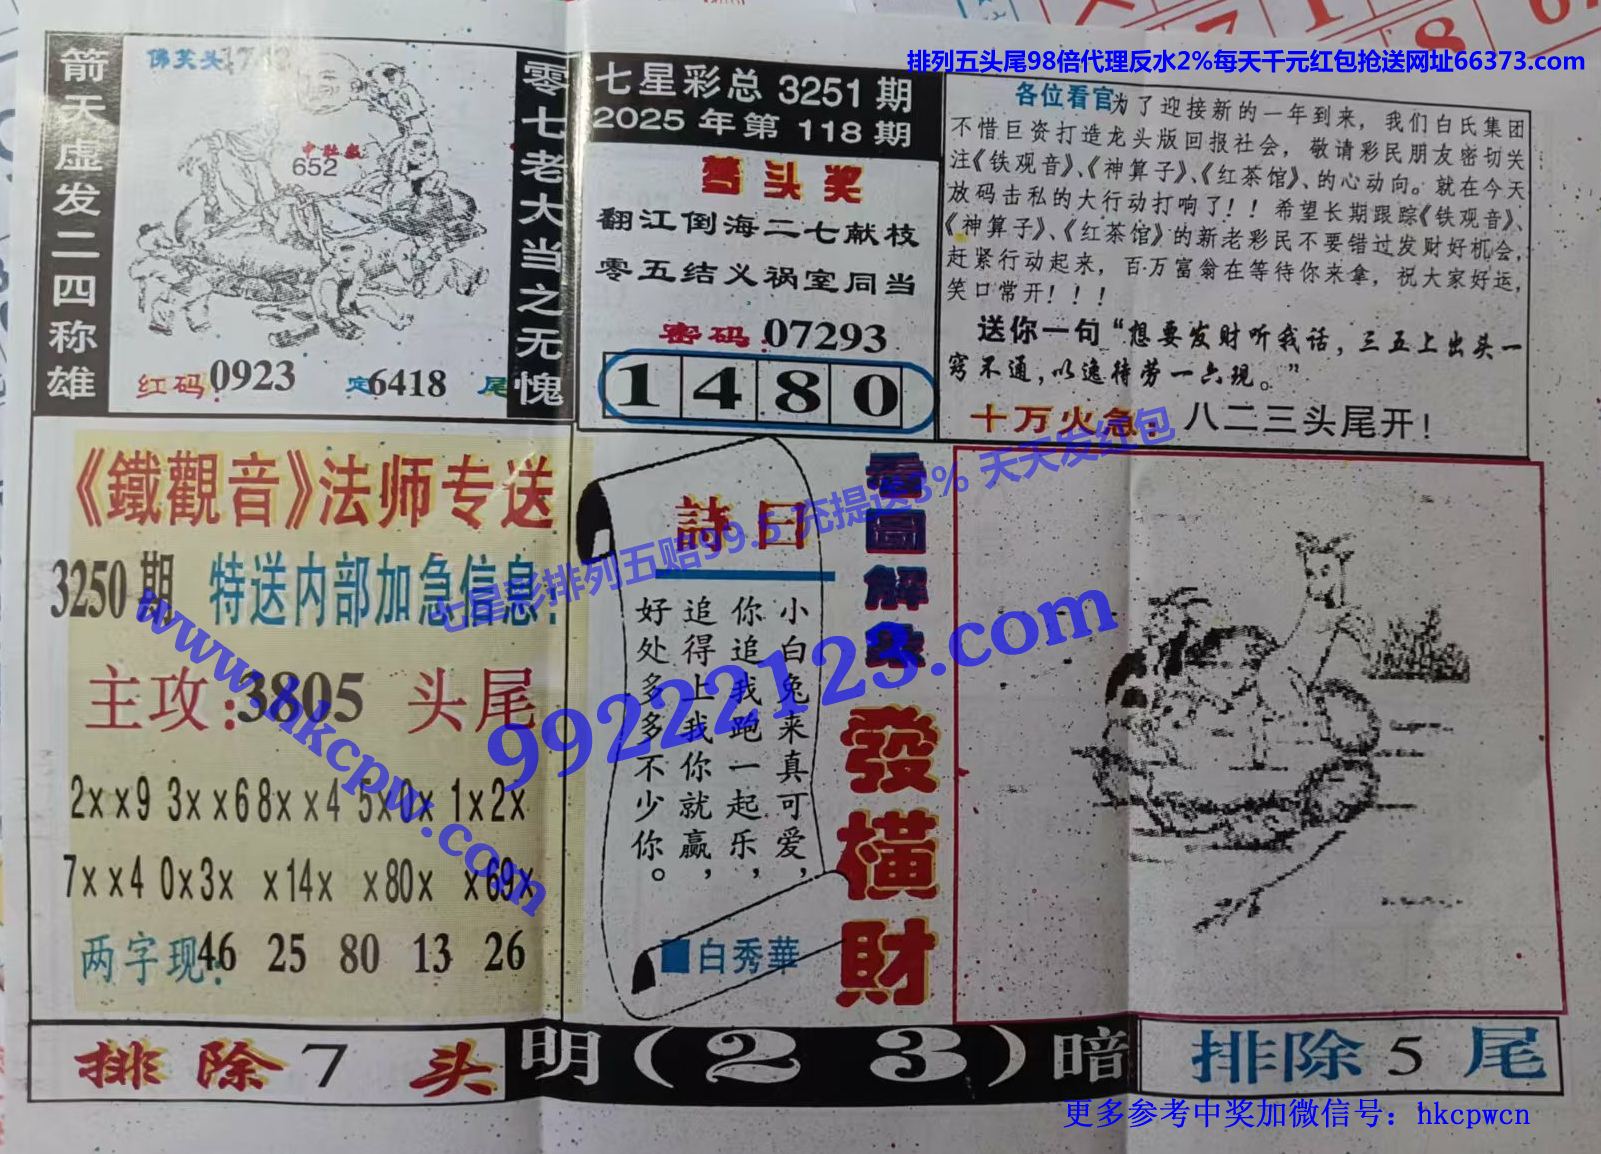 排列五头尾98倍代理反水2%每天千元红包抢送网址66373.com
箭天虚发二四称雄
佛芙头
中肚数
652
红码:0923 定6418 尾
零七老大当之无愧
七星彩总 3251 期
2025 年第 118 期
头奖
翻江倒海二七献枝
零五结义祸室同当
密码:07293
1 4 8 0
各位看官为了迎接新的一年到来，我们白氏集团
不惜巨资打造龙头版回报社会，敬请彩民朋友密切关
注《铁观音》、《神算子》、《红茶馆》、的心动向。就在今天
放码击私的大行动打响了！！希望长期跟踪《铁观音》、
《神算子》、《红茶馆》的新老彩民不要错过发财好机会，
赶紧行动起来，百万富翁在等待你来拿，祝大家好运，
笑口常开！！！
送你一句“想要发财听我话，三五上出头一
窍不通，以逸待劳一六现。”
十万火急：八二三头尾开！
《鐵觀音》法师专送
3250期 特送内部加急信息：
主攻:3805 头尾
2××9 3××6 8××4 5×0× 1×2×
7××4 0×3× ×14× ×80× ×69×
两字现:46 25 80 13 26
詩曰
小白兔来真可爱，
你追我跑一起乐，
追得上我你就赢，
好处多多不少你。
白秀華
看圖解
發橫財
排除7头
明(23)暗
排除5尾
七星彩排列五赔99.5 充提送3% 天天发红包
www.hkcpw.com
99222123.com
更多参考中奖加微信号：hkcpwcn